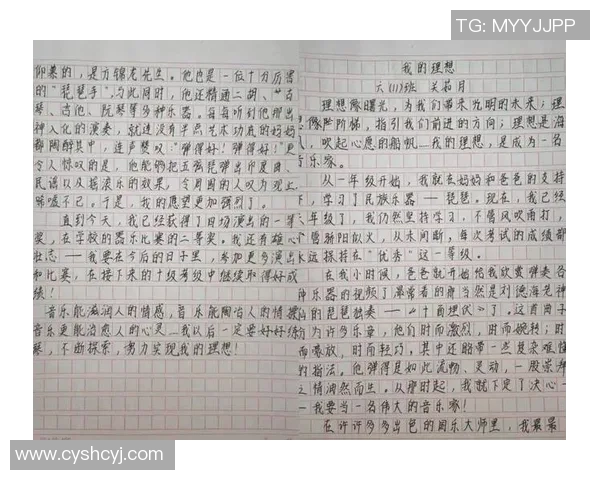 TG: MYYJJPP
我的理想
六(11)班 关茹月
理想像曙光，为我们带来光明的未来；理
像阶梯，指引我们前进的方向；理想是海
，吹起心愿的船帆……我的理想，是成为一名
音乐家。
从一年级开始，我就在妈妈和爸爸的支持
下，学习了民族乐器——琵琶。现在，我已经
年级了，我仍然坚持学习，不管风吹雨打，
管骄阳似火，从未间断，每次考试的成绩都
永远保持在“优秀”这一等级。
在我小时候，爸爸就开始给我欣赏弹奏各
种乐器的视频了。最常看的当然是刘德海老
的琵琶独奏——《十面埋伏》了。这首曲子
为许多乐章，他们时而激烈，时而婉转；时
而奔放，时而轻巧。其中还包带一些其杂难
的指法。他弹得是如此流畅、灵动，一股崇拜
之情油然而生。从那时起，我就下定了决心——
——我要当一名伟大的音乐家！
在许许多多出色的国乐大师里，我最
仰慕的，是方锦龙先生。他也是一位十分厉害
的“琵琶手”，与此同时，他还精通二胡、古
琴、吉他、阮琴等多种乐器。每每听到他那出
神入化的演奏，就连没有半点艺术功底的妈妈
都陶醉其中，连声赞叹：“弹得好！弹得好！”更
令人惊叹的是，他能够把五弦琵琶弹出印度曲、
民谣以及摇滚乐的效果，令周围的人叹为观止，
唏嘘不已。于是，我的愿望更加强烈了。
直到今天，我已经获得了日场演出的一等
奖，在学校的器乐比赛的二等奖。我还有雄心
壮志——我要在今后的日子里，参加更多演出
和比赛，在接下来的十级考级中继续取得好成
绩！
音乐能滋润人的情感，音乐能陶冶人的情操，
音乐更能治愈人的心灵……我以后一定要好好练
琴，不断探索，努力实现我的理想！
www.cyshcyj.com